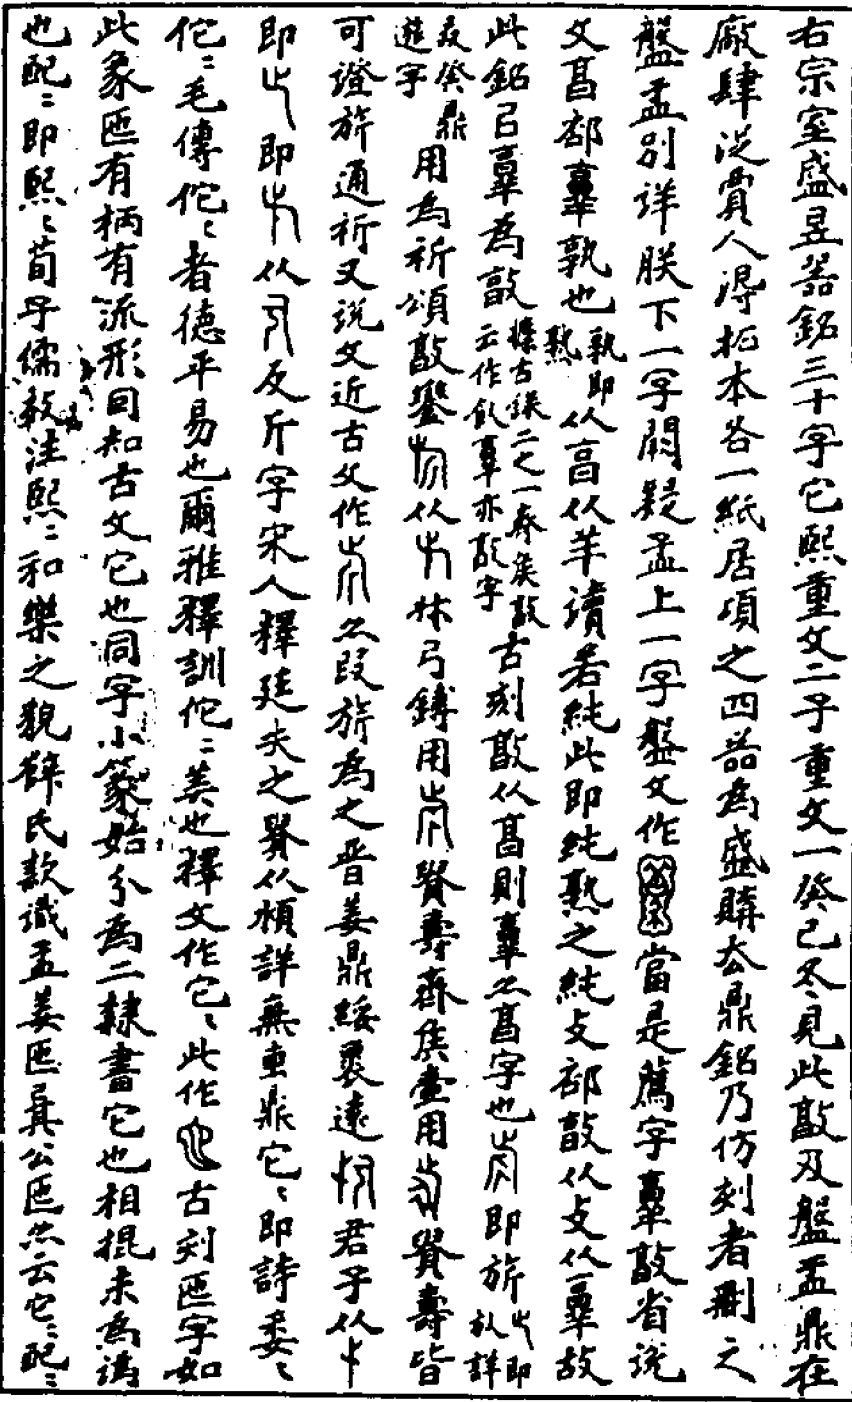 右宗室盛昱器銘三十字它熙重文二子重文一癸己冬見此敦及盤盂鼎在
廠肆從賈人得拓本各一紙居頃之四器為盛購去鼎銘乃仿刻者刪之
盤盂別詳朕下一字闕疑盂上一字盤文作當是薦字𦎫敦省說
文𣆏部𦎫孰也孰即熟从𣆏从羊讀若純此即純熟之純攴部敦从攴从𦎫故
此銘㠯𦎫為敦攈古錄二之一齊矦敦云作飤𦎫亦敦字古刻敦从𣆏則𦎫亦𣆏字也即旂止即㫃詳
及癸鼎遊字用為祈頌敦鑾从林弓鎛用眉壽齊矦壺用眉壽皆
可證旂通祈又說文近古文作亦叚旂為之晉姜鼎綏褱遠君子从
即止即从反斤字宋人釋廷失之眉从頮詳無叀鼎它〻即詩委〻
佗〻毛傳佗〻者德平易也爾雅釋訓佗〻美也釋文作它〻此作古刻匜字如
此象匜有柄有流形因知古文它也同字小篆始分為二隸書它也相掍未為譌
也配〻即熙〻荀子儒效注熙〻和樂之貌薛氏款識孟姜匜㠱公匜亦云它〻配〻